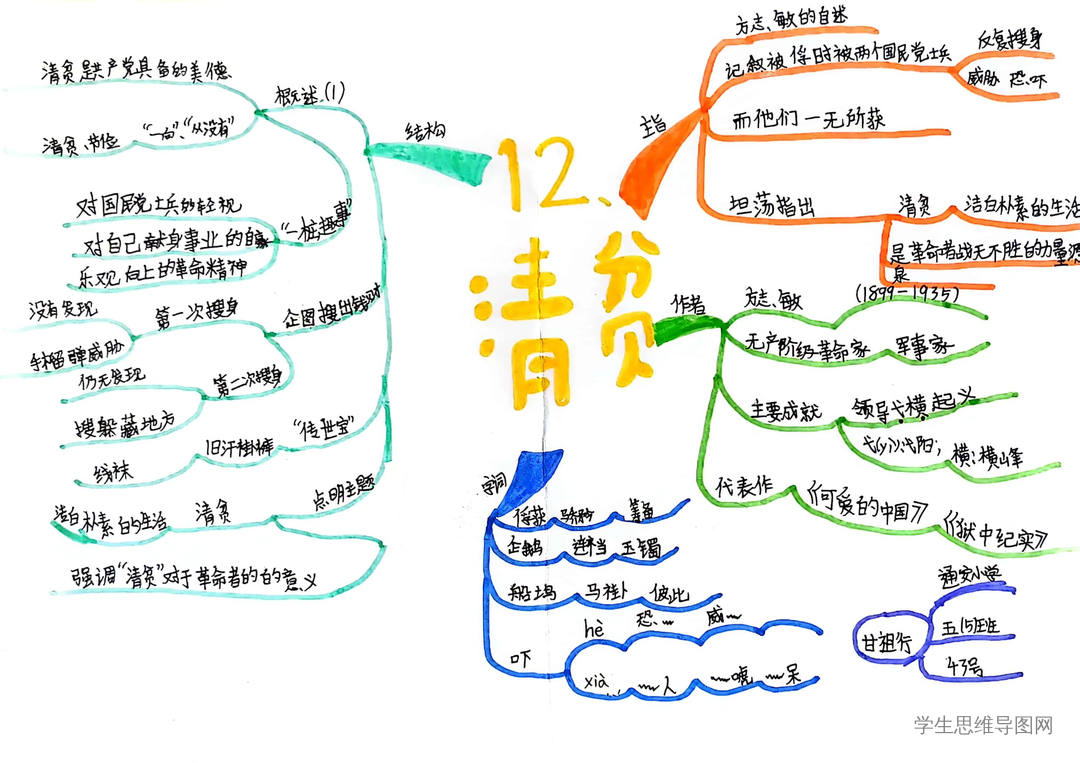 12、
清贫
主旨
方志敏的自述
记叙被俘时被两个国民党士兵
反复搜身
威胁 恐吓
而他们一无所获
坦荡指出
清贫
洁白朴素的生活
是革命者战无不胜的力量源
泉
作者
方志敏
(1899-1935)
无产阶级革命家
军事家
主要成就
领导弋横起义
弋(yì):弋阳;
横:横峰
代表作
《可爱的中国》
《狱中纪实》
字词
俘获
企鹅
玉镯
船坞
马褂
彼此
吓
hè
恐﹏
威﹏
xià
﹏人
﹏唬
﹏呆
甘祖行
通安小学
五(5)班
43号
结构
概述.(1)
清贫是共产党具备的美德
"一向"、"从没有"
清贫、节俭
"一桩趣事"
对国民党士兵的轻视
对自己献身事业的自豪
乐观向上的革命精神
企图搜出钱财
第一次搜身
没有发现
手榴弹威胁
第二次搜身
仍无发现
搜躲藏地方
"传世宝"
旧汗褂裤
线袜
点明主题
清贫
洁白朴素的生活
强调"清贫"对于革命者的的意义
学生思维导图网